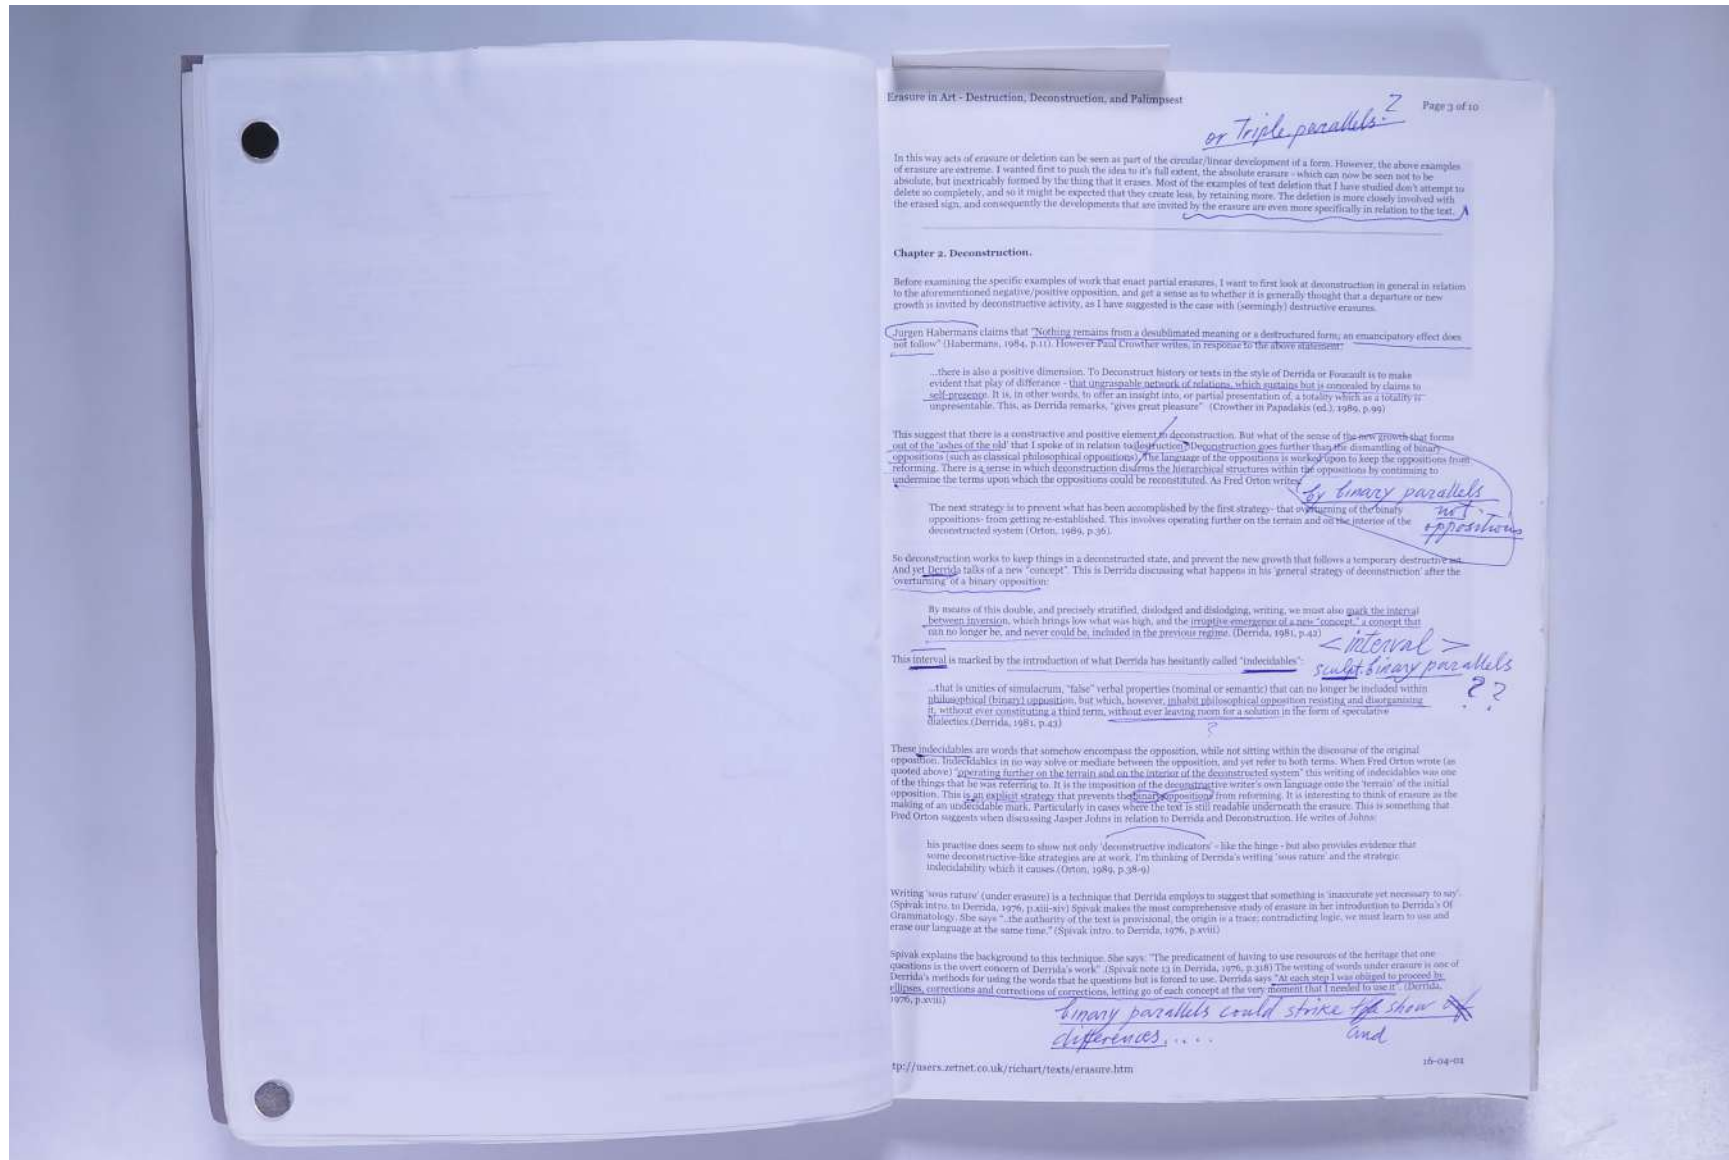 Erasure in Art - Destruction, Deconstruction, and Palimpsest
Page 3 of 10
or Triple parallels?
In this way acts of erasure or deletion can be seen as part of the circular/linear development of a form. However, the above examples
of erasure are extreme. I wanted first to push the idea to it's full extent, the absolute erasure - which can now be seen not to be
absolute, but inextricably formed by the thing that it erases. Most of the examples of text deletion that I have studied don't attempt to
delete so completely, and so it might be expected that they create less, by retaining more. The deletion is more closely involved with
the erased sign, and consequently the developments that are invited by the erasure are even more specifically in relation to the text.
Chapter 2. Deconstruction.
Before examining the specific examples of work that enact partial erasures, I want to first look at deconstruction in general in relation
to the aforementioned negative/positive opposition, and get a sense as to whether it is generally thought that a departure or new
growth is invited by deconstructive activity, as I have suggested is the case with (seemingly) destructive erasures.
Jurgen Habermans claims that "Nothing remains from a desublimated meaning or a destructured form; an emancipatory effect does
not follow" (Habermans, 1984, p.11). However Paul Crowther writes, in response to the above statement:
...there is also a positive dimension. To Deconstruct history or texts in the style of Derrida or Foucault is to make
evident that play of differance - that ungraspable network of relations, which sustains but is concealed by claims to
self-presence. It is, in other words, to offer an insight into, or partial presentation of, a totality which as a totality is
unpresentable. This, as Derrida remarks, "gives great pleasure" (Crowther in Papadakis (ed.), 1989, p.99)
This suggest that there is a constructive and positive element to deconstruction. But what of the sense of the new growth that forms
out of the 'ashes of the old' that I spoke of in relation to destruction? Deconstruction goes further than the dismantling of binary
oppositions (such as classical philosophical oppositions). The language of the oppositions is worked upon to keep the oppositions from
reforming. There is a sense in which deconstruction disarms the hierarchical structures within the oppositions by continuing to
undermine the terms upon which the oppositions could be reconstituted. As Fred Orton writes:
by binary parallels
not
oppositions
The next strategy is to prevent what has been accomplished by the first strategy- that overturning of the binary
oppositions- from getting re-established. This involves operating further on the terrain and on the interior of the
deconstructed system (Orton, 1989, p.36).
So deconstruction works to keep things in a deconstructed state, and prevent the new growth that follows a temporary destructive act.
And yet Derrida talks of a new "concept". This is Derrida discussing what happens in his 'general strategy of deconstruction' after the
'overturning' of a binary opposition:
By means of this double, and precisely stratified, dislodged and dislodging, writing, we must also mark the interval
between inversion, which brings low what was high, and the irruptive emergence of a new "concept," a concept that
can no longer be, and never could be, included in the previous regime. (Derrida, 1981, p.42)
<interval>
This interval is marked by the introduction of what Derrida has hesitantly called "indecidables":
sculpt. binary parallels
? ?
...that is unities of simulacrum, "false" verbal properties (nominal or semantic) that can no longer be included within
philosophical (binary) opposition, but which, however, inhabit philosophical opposition resisting and disorganising
it, without ever constituting a third term, without ever leaving room for a solution in the form of speculative
dialectics.(Derrida, 1981, p.43)
?
These indecidables are words that somehow encompass the opposition, while not sitting within the discourse of the original
opposition. Indecidables in no way solve or mediate between the opposition, and yet refer to both terms. When Fred Orton wrote (as
quoted above) "operating further on the terrain and on the interior of the deconstructed system" this writing of indecidables was one
of the things that he was referring to. It is the imposition of the deconstructive writer's own language onto the 'terrain' of the initial
opposition. This is an explicit strategy that prevents the binary oppositions from reforming. It is interesting to think of erasure as the
making of an undecidable mark. Particularly in cases where the text is still readable underneath the erasure. This is something that
Fred Orton suggests when discussing Jasper Johns in relation to Derrida and Deconstruction. He writes of Johns:
his practise does seem to show not only 'deconstructive indicators' - like the hinge - but also provides evidence that
some deconstructive-like strategies are at work. I'm thinking of Derrida's writing 'sous rature' and the strategic
indecidability which it causes.(Orton, 1989, p.38-9)
Writing 'sous rature' (under erasure) is a technique that Derrida employs to suggest that something is 'inaccurate yet necessary to say'.
(Spivak intro. to Derrida, 1976, p.xiii-xiv) Spivak makes the most comprehensive study of erasure in her introduction to Derrida's Of
Grammatology. She says "..the authority of the text is provisional, the origin is a trace; contradicting logic, we must learn to use and
erase our language at the same time." (Spivak intro. to Derrida, 1976, p.xviii)
Spivak explains the background to this technique. She says: "The predicament of having to use resources of the heritage that one
questions is the overt concern of Derrida's work" .(Spivak note 13 in Derrida, 1976, p.318) The writing of words under erasure is one of
Derrida's methods for using the words that he questions but is forced to use. Derrida says "At each step I was obliged to proceed by
ellipses, corrections and corrections of corrections, letting go of each concept at the very moment that I needed to use it". (Derrida,
1976, p.xviii)
binary parallels could strike the show of
differences,.... and
tp://users.zetnet.co.uk/richart/texts/erasure.htm
16-04-01